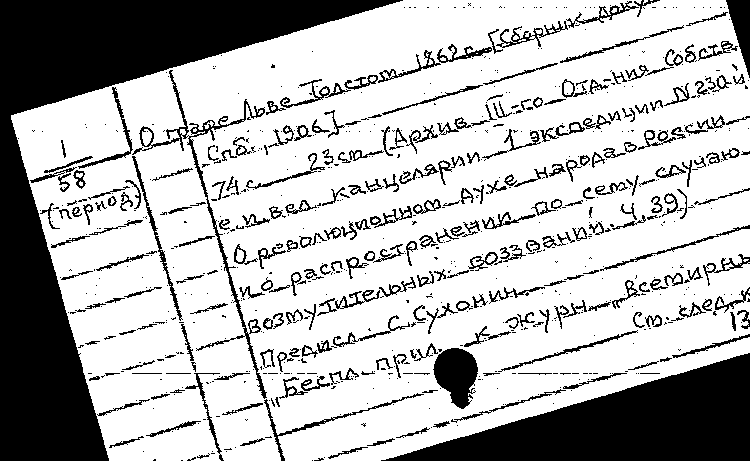 О графе Льве Толстом 1862 г. [Сборник доку
Спб., 1906]
74 с. 23 см (Архив III-го Отд-ния Собств
е и вел канцелярии 1 экспедиции N 230 й
О революционном духе народа в России
и о распространении по сему случаю
возмутительных воззваний. Ч, 39)
Предисл. С. Сухонин.
„Беспл. прил. к журн. „Всемирны
См. след. к
13
1
58
(период)